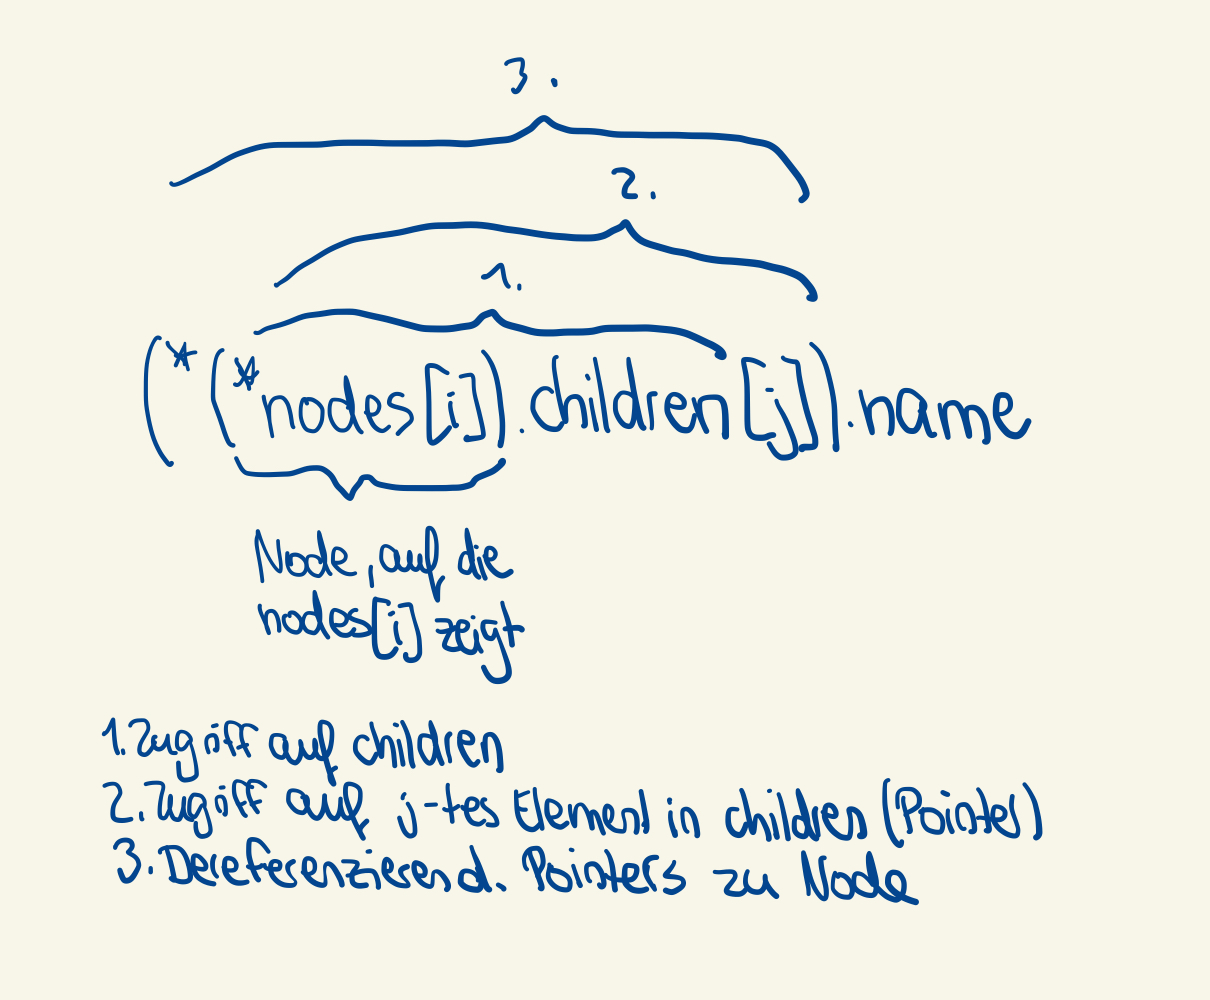 3.
2.
1.
(*(*nodes[i]).children[j]).name
Node, auf die
nodes[i] zeigt
1. Zugriff auf children
2. Zugriff auf j-tes Element in children (Pointer)
3. Dereferenzieren d. Pointers zu Node